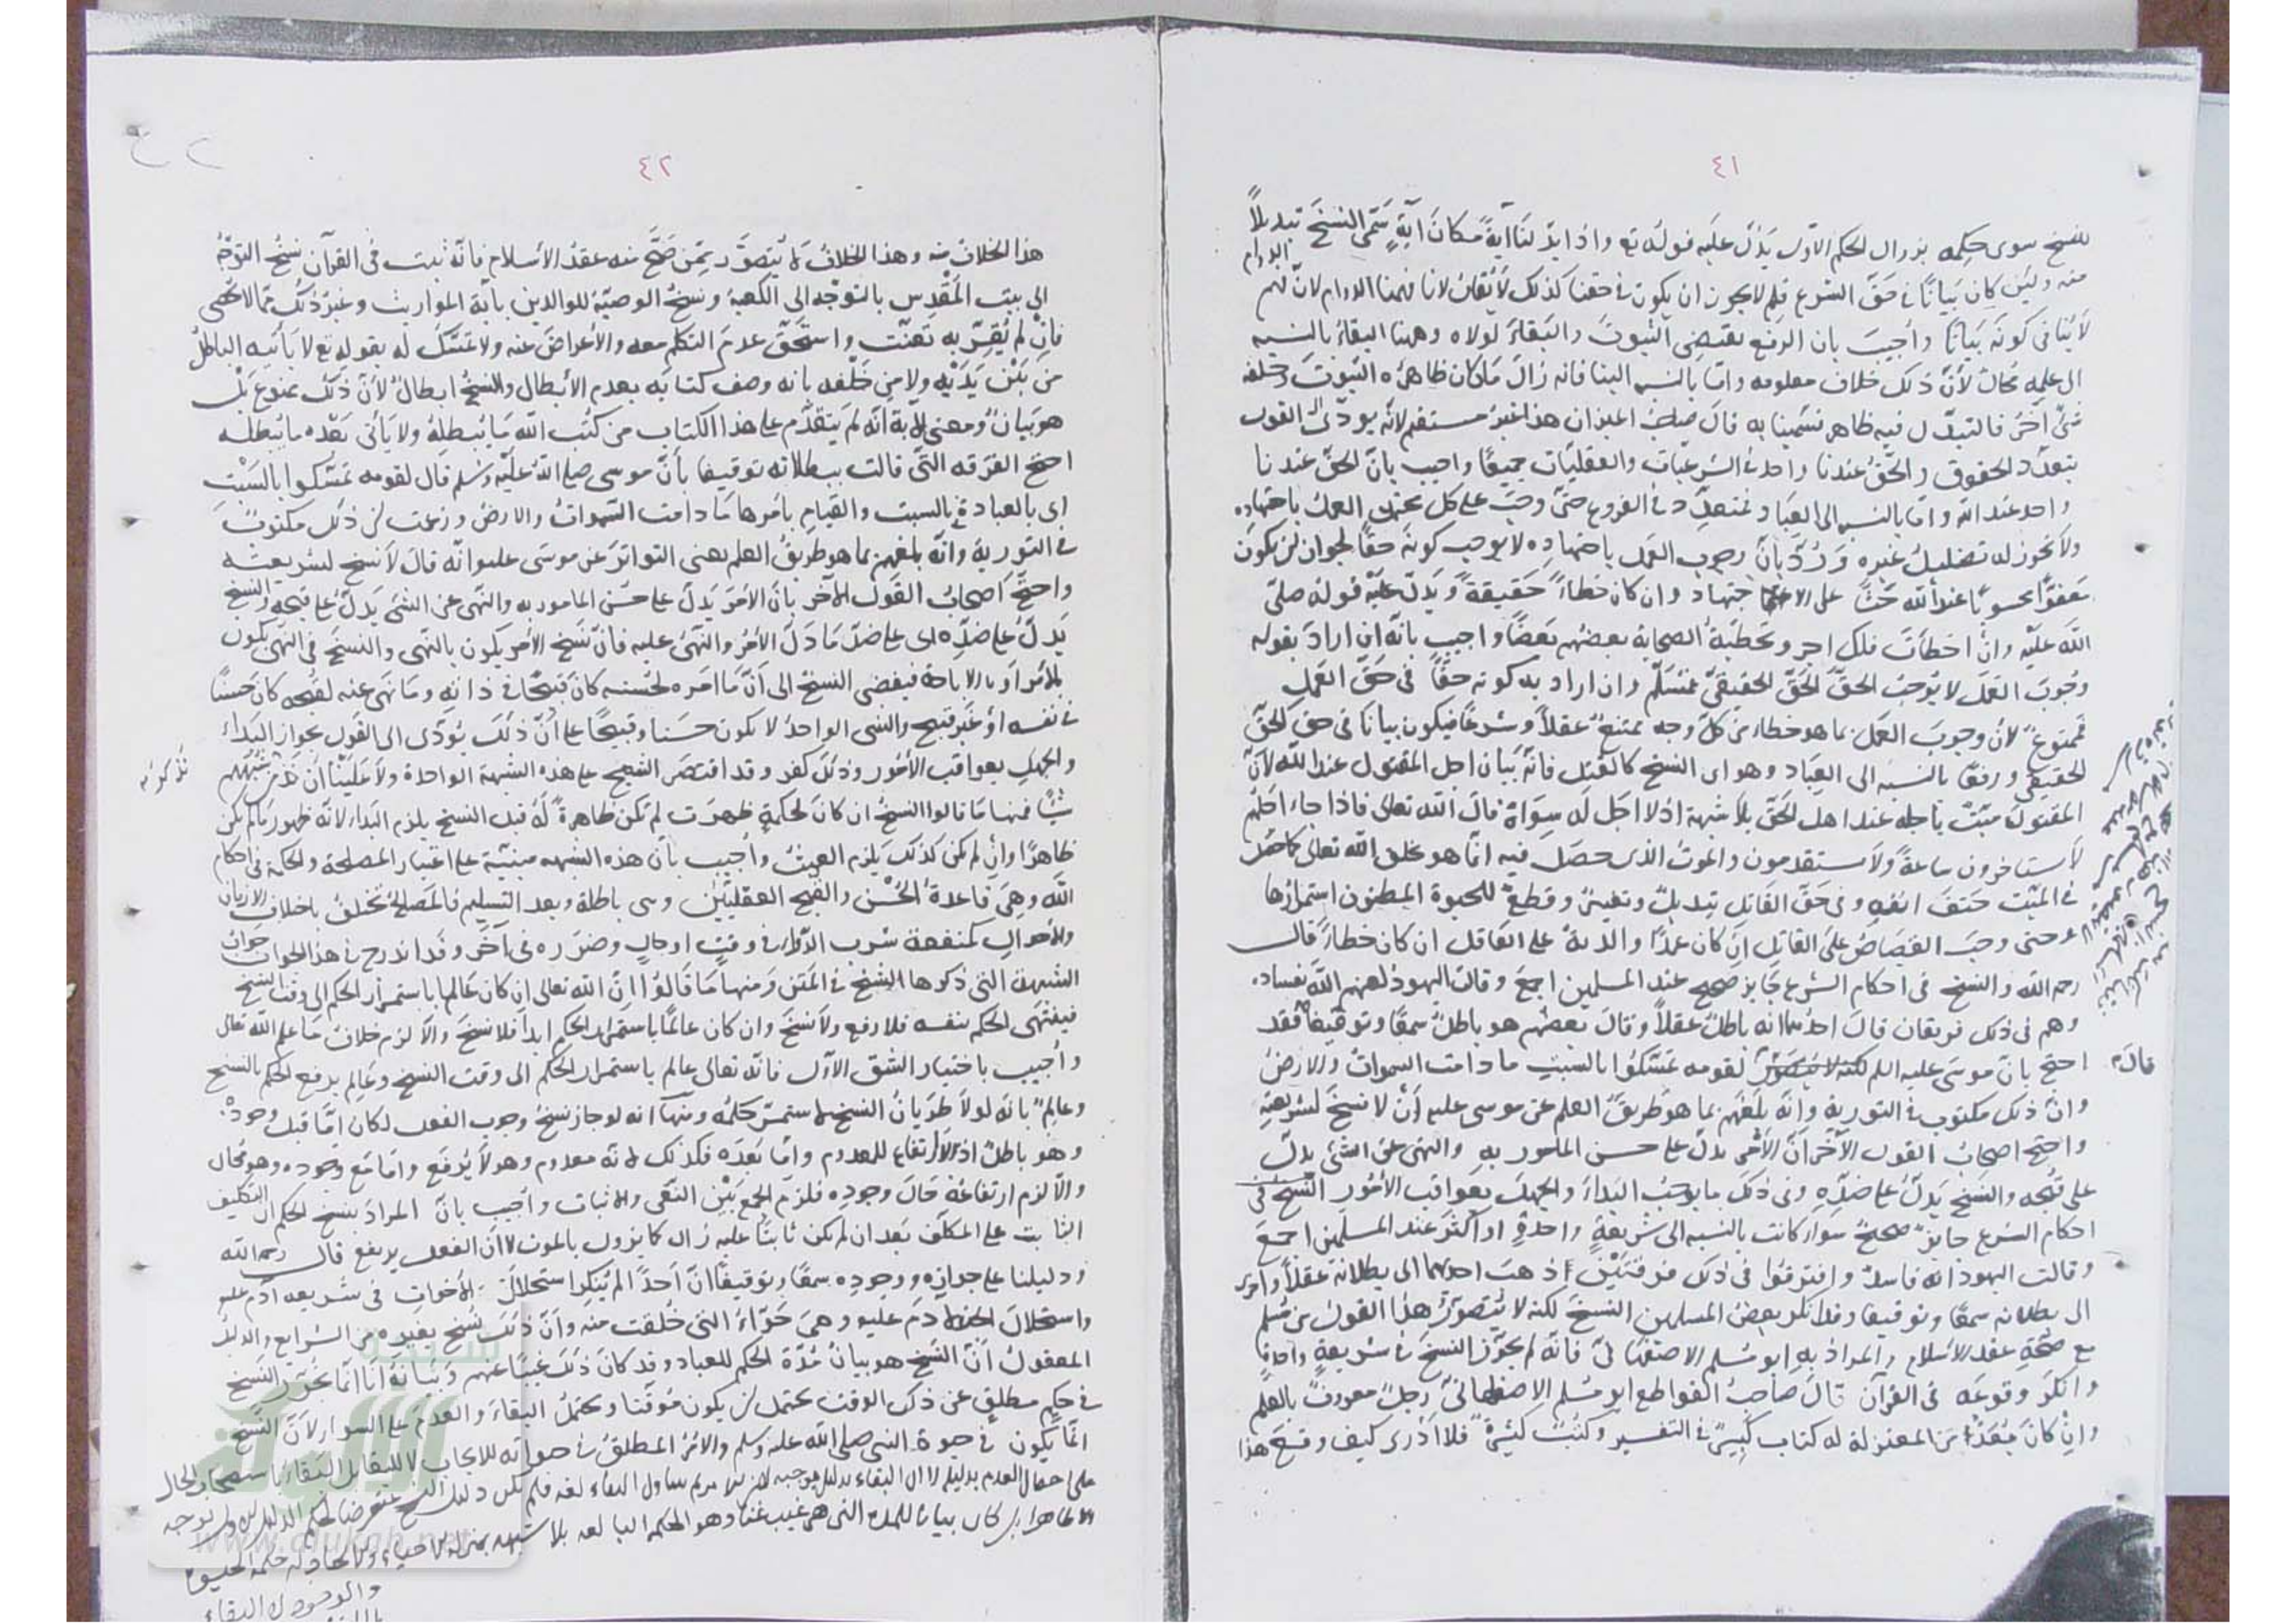 ٤١
للنسخ سوى حكمه بزوال الحكم الأول يدل عليه قوله تع واذا بدلنا آية مكان آية سمى النسخ تبديلاً
منه ولئن كان بيانًا فى حق الشرع فلم لا يجوز ان يكون فى حقنا كذلك لا يقال لانا فهمنا الدوام لان فهم الدوام
لا ينافى كونه بيانًا وأجيب بان الرفع يقتضى الثبوت والبقاء لولاه وههنا البقاء بالنسبه
الى علمه محال لأن ذلك خلاف معلومه واما بالنسبه الينا فانه زال ما كان ظاهره الثبوت وخلفه
شئ آخر فالتبدل فيه ظاهر فسمينا به قال صاحب الميزان هذا غير مستقيم لانه يودى الى القول
بتعدد الحقوق والحق عندنا واحد فى الشرعيات والعقليات جميعًا واجيب بان الحق عندنا
واحد عند الله واما بالنسبه الى العباد فمتعدد فى الفروع حتى وجب على كل مجتهد العمل باجتهاده
ولا يجوز له تضليل غيره ورُدّ بان وجوب العمل باجتهاده لا يوجب كونه حقًا لجواز لن يكون
معفوًا محسوبًا عند الله حثًا على الاجتهاد وان كان خطاءً حقيقة ويدل عليه قوله صلى
الله عليه وان اخطأت فلك اجر وتخطية الصحابة بعضهم بعضًا واجيب بانه ان اراد بقوله
وجوب العمل لا يوجب الحق الحق الحقيقى فمسلم وان اراد به كونه حقًا فى حق العمل
فممنوع لان وجوب العمل بما هو خطاء من كل وجه ممتنع عقلاً وشرعًا فيكون بيانا فى حق الحق
الحقيقى ورفعًا بالنسبه الى العباد وهو اى النسخ كالقتل فانه بيان اجل المقتول عند الله لان
المقتول ميت باجله عند اهل الحق بلا شبهة اذ لا اجل له سواه قال الله تعالى فاذا جاء اجلهم
لا يستاخرون ساعة ولا يستقدمون والموت الذى حصل فيه انما هو بخلق الله تعالى كما حصل
فى الميت حتف انفه وفى حق القاتل تبديل وتغيير وقطع للحيوة المظنون استمرارها
حتى وجب القصاص على القاتل ان كان عمدًا والدية على العاقل ان كان خطاءً قال
رحمه الله والنسخ فى احكام الشرع جايز صحيح عند المسلمين اجمع وقالت اليهود لعنهم الله بفساده
وهم فى ذلك فريقان قال احدهما انه باطل عقلاً وقال بعضهم هو باطل سمعًا وتوقيفًا فقد
احتج بان موسى عليه السلم قال لقومه تمسكوا بالسبت ما دامت السموات والارض
وان ذلك مكتوب فى التورية وانه بلغهم بما هو طريق العلم عن موسى عليه أن لا نسخ لشريعته
واحتج اصحاب القول الآخر ان الأمر يدل على حسن المامور به والنهى عن الشئ يدل
على قبحه والنسخ يدل على ضده وفى ذلك ما يوجب البداء والجهل بعواقب الأمور النسخ فى
احكام الشرع جايز صحيح سواء كانت بالنسبه الى شريعة واحدة او اكثر عند المسلمين اجمع
وقالت اليهود انه فاسد وافترقوا فى ذلك فرقتين اذ ذهبت احديهما الى بطلانه عقلاً واخرى
الى بطلانه سمعًا وتوقيفا وقد انكر بعض المسلمين النسخ لكنه لا يتصور هذا القول من مسلم
مع صحة عقد الاسلام والمراد به ابو مسلم الاصفهانى فانه لم يجوز النسخ فى شريعة واحدة
وانكر وقوعه فى القرآن قال صاحب القواطع ابو مسلم الاصفهانى رجل معروف بالعلم
وإن كان يُعَدّ من المعتزلة له كتاب كبير فى التفسير وكتب كثيرة فلا أدرى كيف وقع هذا
٤٢
هذا الخلاف منه وهذا الخلاف لا يتصور ممن صح منه عقد الأسلام فانه ثبت فى القرآن نسخ التوجه
الى بيت المقدس بالتوجه الى الكعبة ونسخ الوصية للوالدين بآية المواريث وغير ذلك مما لا تحصى
فان لم يقر به تعنت واستحق عدم التكلم معه والأعراض عنه ولا تمسك له بقوله تع لا يأتيه الباطل
من بين يديه ولا من خلفه بانه وصف كتابه بعدم الأبطال والنسخ ابطال لأن ذلك ممنوع بل
هو بيان ومعنى الآية انه لم يتقدم على هذا الكتاب من كتب الله ما يبطله ولا يأتى بعده ما يبطله
احتج الفرقه التى قالت ببطلانه توقيفا بأن موسى صلى الله عليه وسلم قال لقومه تمسكوا بالسبت
اى بالعبادة فى السبت والقيام بأمرها ما دامت السموات والارض وزعمت لن ذلك مكتوب
فى التورية وانه بلغهم بما هو طريق العلم يعنى التواتر عن موسى عليه انه قال لا نسخ لشريعته
واحتج اصحاب القول الآخر بان الأمر يدل على حسن المامور به والنهى عن الشئ يدل على قبحه والنسخ
يدل على ضده اى على ضد ما دل الأمر والنهى عليه فان نسخ الأمر يكون بالنهى والنسخ فى النهى يكون
بالأمر أو بالاباحة فيفضى النسخ الى أن ما امره لحسنه كان قبيحًا فى ذاته وما نهى عنه لقبحه كان حسنًا
فى نفسه او غير قبيح والشئ الواحد لا يكون حسنا وقبيحًا على أن ذلك يؤدى الى القول بجواز البداء
والجهل بعواقب الأمور وذلك كفر وقد اقتصر الشيخ على هذه الشبهة الواحدة ولا علينا ان نذكر من شبههم
شيئًا فمنها ما قالوا النسخ ان كان لحكمة ظهرت لم تكن ظاهرة له قبل النسخ يلزم البداء لانه ظهور ما لم يكن
ظاهرًا وان لم يكن كذلك يلزم العبث وأجيب بان هذه الشبهه مبنية على اعتبار المصلحة والحكمة فى احكام
الله وهى قاعدة الحسن والقبح العقليين وهى باطلة وبعد التسليم فالمصالح تختلف باختلاف الازمان
والأحوال كمنفعة شرب الدواء فى وقت او حال وضرره فى آخر وقد اندرج فى هذا الجواب جواب
الشبهة التى ذكرها الشيخ فى المتن ومنها ما قالوا ان الله تعالى ان كان عالما باستمرار الحكم الى وقت النسخ
فينتهى الحكم بنفسه فلا رفع ولا نسخ وان كان عالمًا باستمرار الحكم ابدًا فلا نسخ والا لزم خلاف ما علم الله تعالى
وأجيب باختيار الشق الأول فانه تعالى عالم باستمرار الحكم الى وقت النسخ وعالم برفع الحكم بالنسخ
وعالم بانه لولا طريان النسخ لاستمر حكمه ومنها انه لو جاز نسخ وجوب الفعل لكان اما قبل وجوده
وهو باطل اذ لا ارتفاع للمعدوم واما بعده فكذلك لانه معدوم وهو لا يرفع واما مع وجوده وهو محال
والا لزم ارتفاعه حال وجوده فلزم الجمع بين النفى والاثبات وأجيب بان المراد بنسخ الحكم ان التكليف
الثابت على المكلف بعد ان لم يكن ثابتًا عليه زال كما يزول بالموت لا ان الفعل يرتفع قال رحمه الله
ودليلنا على جوازه ووجوده سمعًا وتوقيفًا ان أحدًا لم ينكر استحلال الأخوات فى شريعه آدم عليه
واستحلال الجزء لآدم عليه وهى حواء التى خلقت منه وأن ذلك نسخ بغيره من الشرايع والدليل
المعقول أن النسخ هو بيان مدة الحكم للعباد وقد كان ذلك غيبًا عنهم وبيانه أنا انما نجوز النسخ
فى حكم مطلق عن ذكر الوقت يحتمل لن يكون مؤقتا ويحتمل البقاء والعدم على السواء لأن النسخ
انما يكون فى حيوة النبى صلى الله عليه وسلم والأمر المطلق فى حيوته للايجاب لا للبقاء بل البقاء باستصحاب الحال
على احتمال العدم بدليله لا ان البقاء بدليل يوجبه
بل كان بيانا للمدة التى هى غيب عنا وهو الحكمة البالغه بلا شبهه بمنزلة الاحياء
www.alukah.net